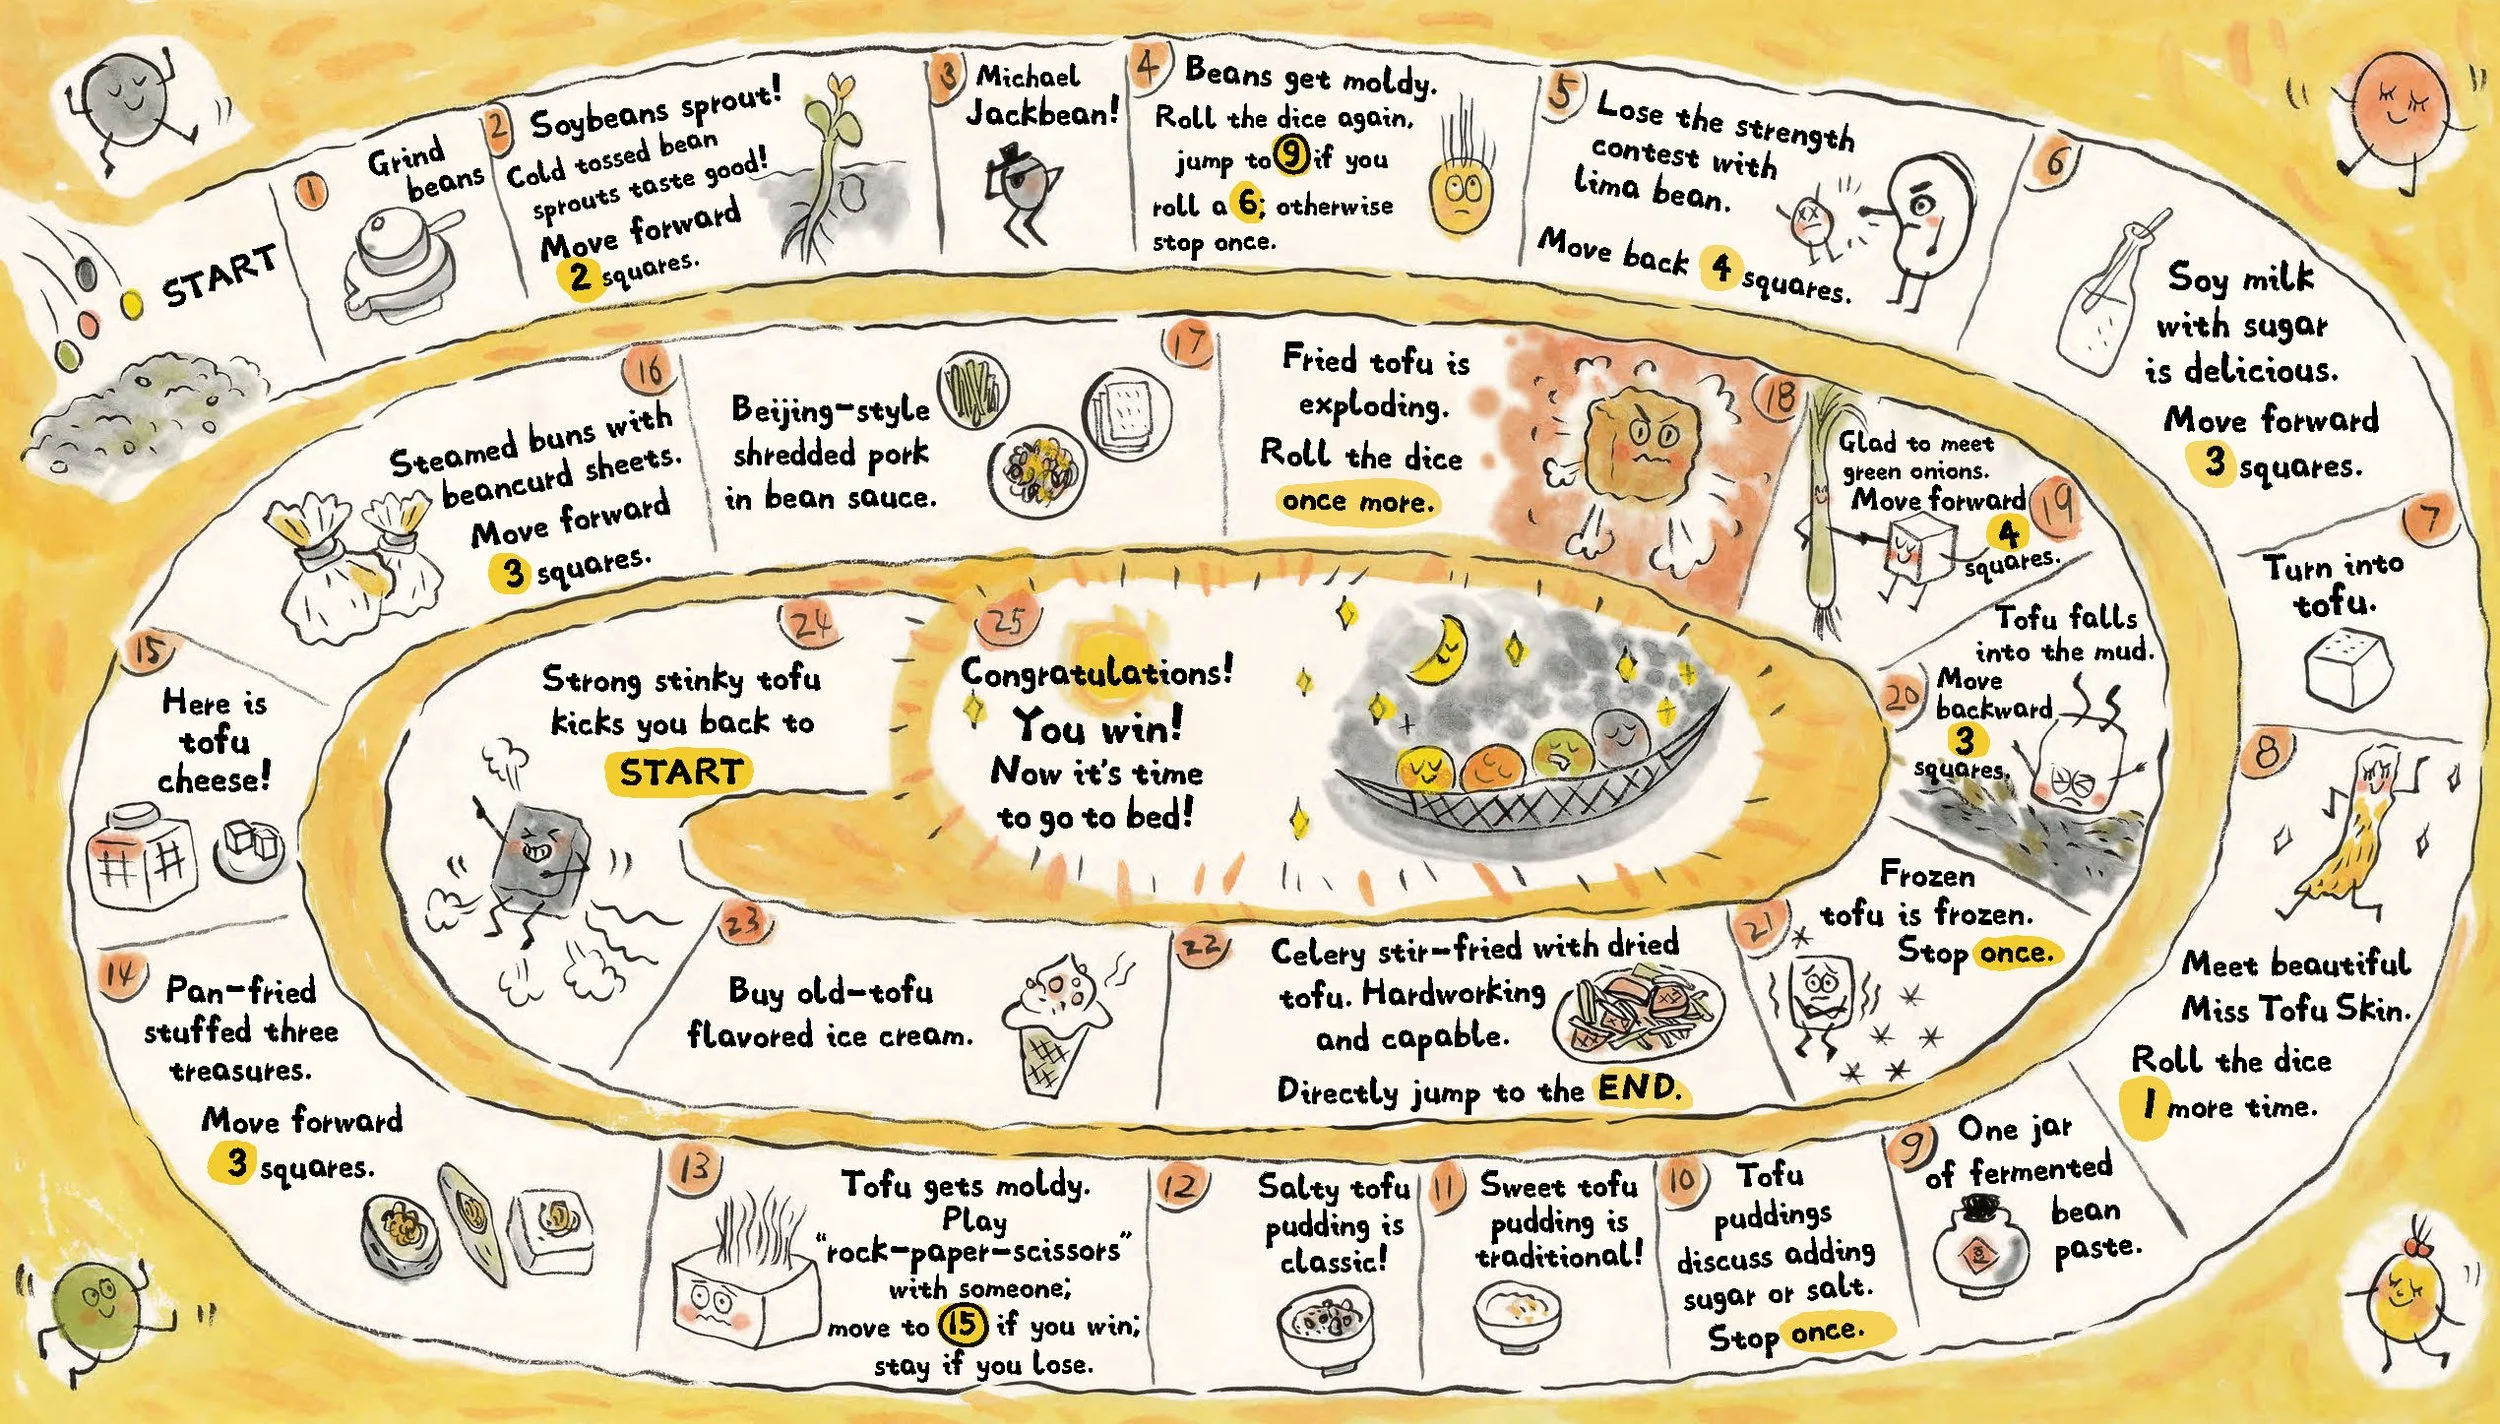 START
1
Grind
beans
2
Soybeans sprout!
Cold tossed bean
sprouts taste good!
Move forward
2 squares.
3
Michael
Jackbean!
4
Beans get moldy.
Roll the dice again,
jump to 9 if you
roll a 6; otherwise
stop once.
5
Lose the strength
contest with
lima bean.
Move back 4 squares.
6
Soy milk
with sugar
is delicious.
Move forward
3 squares.
7
Turn into
tofu.
8
Meet beautiful
Miss Tofu Skin.
Roll the dice
1 more time.
9
One jar
of fermented
bean
paste.
10
Tofu
puddings
discuss adding
sugar or salt.
Stop once.
11
Sweet tofu
pudding is
traditional!
12
Salty tofu
pudding is
classic!
13
Tofu gets moldy.
Play
"rock-paper-scissors"
with someone;
move to 15 if you win;
stay if you lose.
14
Pan-fried
stuffed three
treasures.
Move forward
3 squares.
15
Here is
tofu
cheese!
16
Steamed buns with
beancurd sheets.
Move forward
3 squares.
17
Beijing-style
shredded pork
in bean sauce.
18
Fried tofu is
exploding.
Roll the dice
once more.
19
Glad to meet
green onions.
Move forward
4
squares.
20
Tofu falls
into the mud.
Move
backward
3
squares.
21
Frozen
tofu is frozen.
Stop once.
22
Celery stir-fried with dried
tofu. Hardworking
and capable.
Directly jump to the END.
23
Buy old-tofu
flavored ice cream.
24
Strong stinky tofu
kicks you back to
START
25
Congratulations!
You win!
Now it's time
to go to bed!